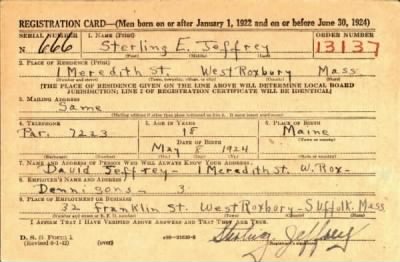 REGISTRATION CARD—(Men born on or after January 1, 1922 and on or before June 30, 1924)
SERIAL NUMBER 1. NAME (Print) ORDER NUMBER
N 666 Sterling E. Jeffrey 13137
(First) (Middle) (Last)
2. PLACE OF RESIDENCE (Print)
1 Meredith St. West Roxbury Mass
[THE PLACE OF RESIDENCE GIVEN ON THE LINE ABOVE WILL DETERMINE LOCAL BOARD
JURISDICTION; LINE 2 OF REGISTRATION CERTIFICATE WILL BE IDENTICAL]
3. MAILING ADDRESS
Same
4. TELEPHONE 5. AGE IN YEARS 6. PLACE OF BIRTH
Par. 7223 18 Maine
DATE OF BIRTH
May 8 1924
7. NAME AND ADDRESS OF PERSON WHO WILL ALWAYS KNOW YOUR ADDRESS
David Jeffrey - 1 Meredith St. W. Rox-
8. EMPLOYER'S NAME AND ADDRESS
Dennisons - 3
9. PLACE OF EMPLOYMENT OR BUSINESS
32 Franklin St. West Roxbury - Suffolk. Mass
I AFFIRM THAT I HAVE VERIFIED ABOVE ANSWERS AND THAT THEY ARE TRUE.
D. S. S. Form 1
Sterling Jeffrey